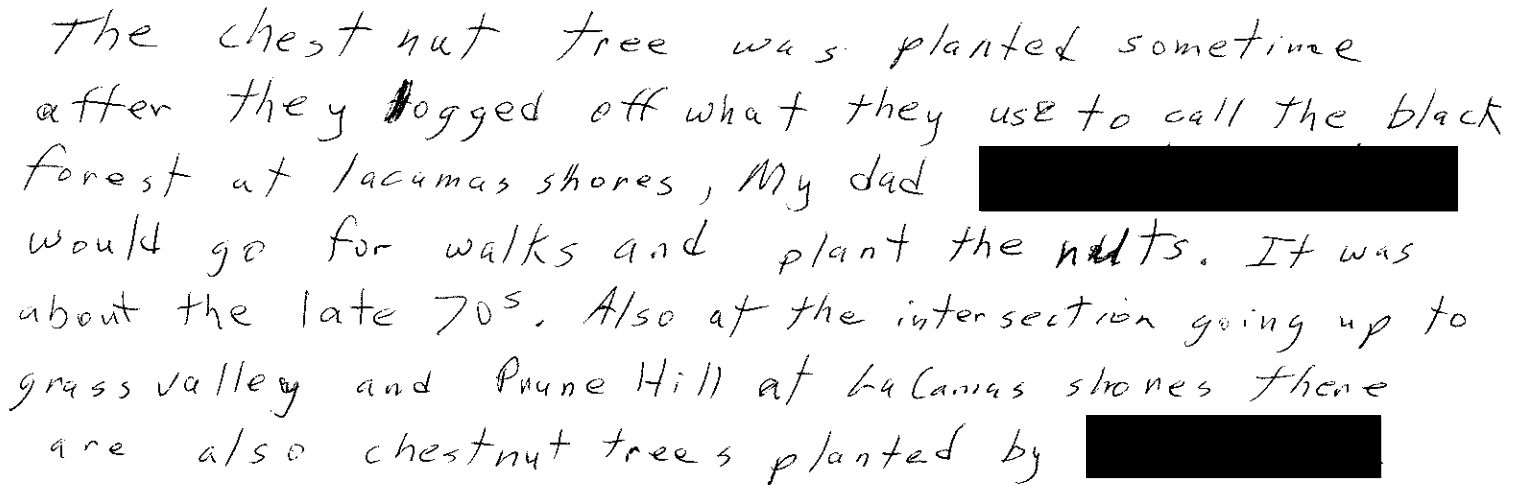 The chestnut tree was planted sometime
after they logged off what they use to call the black
forest at lacamas shores, My dad
would go for walks and plant the nuts. It was
about the late 70s. Also at the intersection going up to
grass valley and Prune Hill at LaCamas shores there
are also chestnut trees planted by